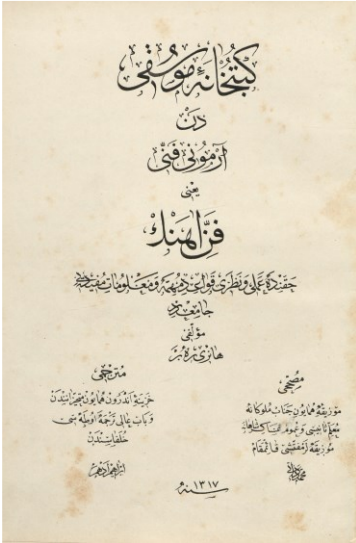 كتبخانهٔ موسقى
دن
آرمونى فنى
يعنى
فن آهنك
حقنده عملى و نظرى قواعد مهمه و معلومات مفيده يى
جامعدر
مؤلفى
هانرى ره بر
مترجمى
خزينهٔ اندرون همايون
و باب عالى ترجمه اوطه سى
خلفاسندن
ابراهيم ادهم
مصححى
موزيقهٔ همايون جناب ملوكانه
معلم ثانيسى و عموم عساكر شاهانه
موزيقه لر مفتشى قائممقام
سنه ١٣١٧